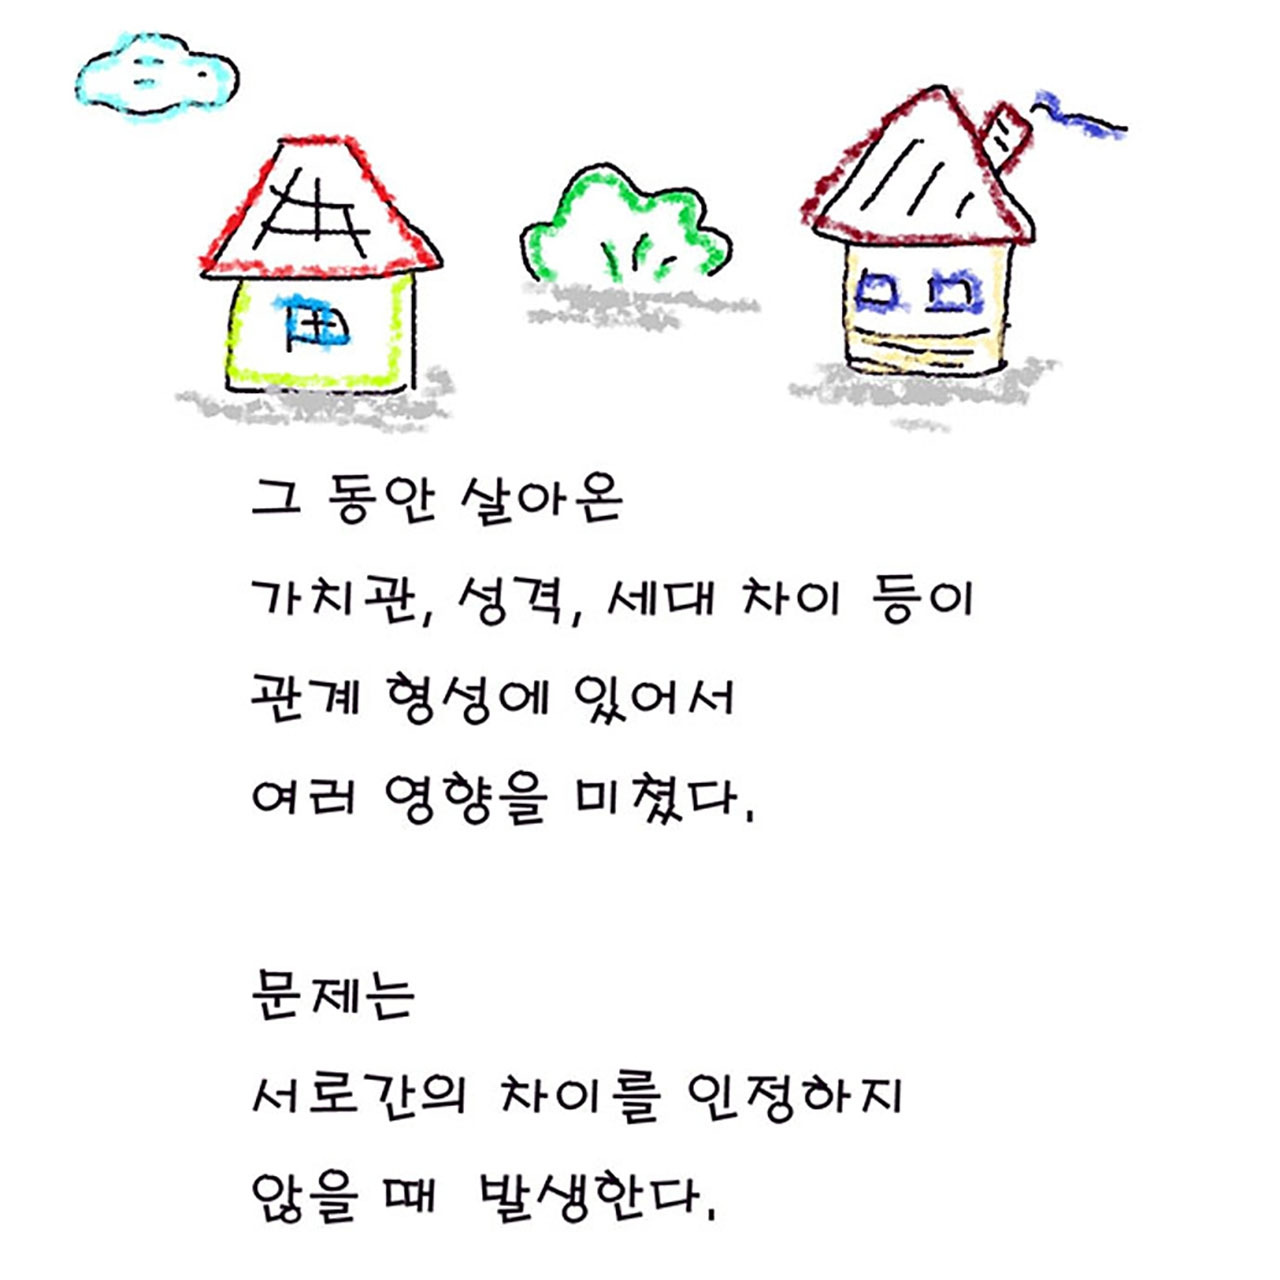 그 동안 살아온
가치관, 성격, 세대 차이 등이
관계 형성에 있어서
여러 영향을 미쳤다.
문제는
서로간의 차이를 인정하지
않을 때 발생한다.